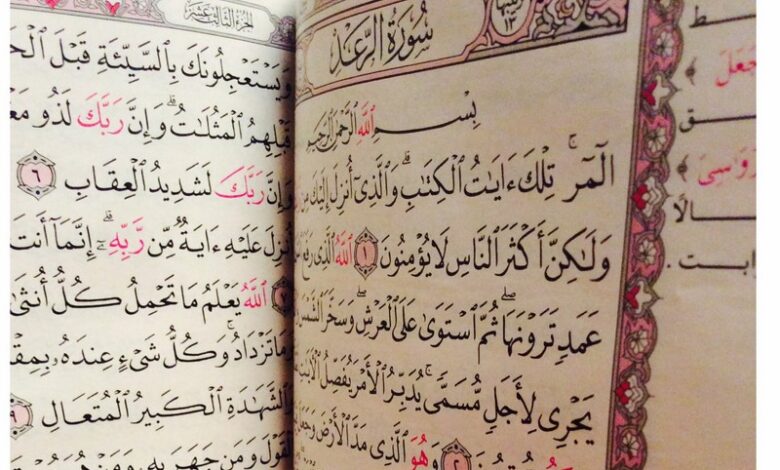 سُورَةُ الرَّعْدِ
بِسْمِ اللَّهِ الرَّحْمَٰنِ الرَّحِيمِ
الٓمٓر ۚ تِلْكَ ءَايَٰتُ الْكِتَٰبِ ۗ وَالَّذِىٓ أُنزِلَ إِلَيْكَ مِن
وَلَٰكِنَّ أَكْثَرَ النَّاسِ لَا يُؤْمِنُونَ ١ اللَّهُ الَّذِى رَفَعَ
عَمَدٍ تَرَوْنَهَا ۖ ثُمَّ اسْتَوَىٰ عَلَى الْعَرْشِ ۖ وَسَخَّرَ الشَّمْسَ
يَجْرِى لِأَجَلٍ مُّسَمًّى ۚ يُدَبِّرُ الْأَمْرَ يُفَصِّلُ الْءَايَٰتِ
٢ وَهُوَ الَّذِى مَدَّ الْأَرْضَ وَجَعَلَ
الجزء الثالث عشر
وَيَسْتَعْجِلُونَكَ بِالسَّيِّئَةِ قَبْلَ
قَبْلِهِمُ الْمَثُلَٰتُ ۗ وَإِنَّ رَبَّكَ لَذُو
وَإِنَّ رَبَّكَ لَشَدِيدُ الْعِقَابِ ٦
أُنزِلَ عَلَيْهِ ءَايَةٌ مِّن رَّبِّهِۦٓ ۗ إِنَّمَآ أَنتَ
٧ اللَّهُ يَعْلَمُ مَا تَحْمِلُ كُلُّ أُنثَىٰ
وَمَا تَزْدَادُ ۖ وَكُلُّ شَىْءٍ عِندَهُۥ
الشَّهَٰدَةِ الْكَبِيرُ الْمُتَعَالِ ٩
الْقَوْلَ وَمَن جَهَرَ بِهِۦ وَمَنْ هُوَ
جَعَلَ